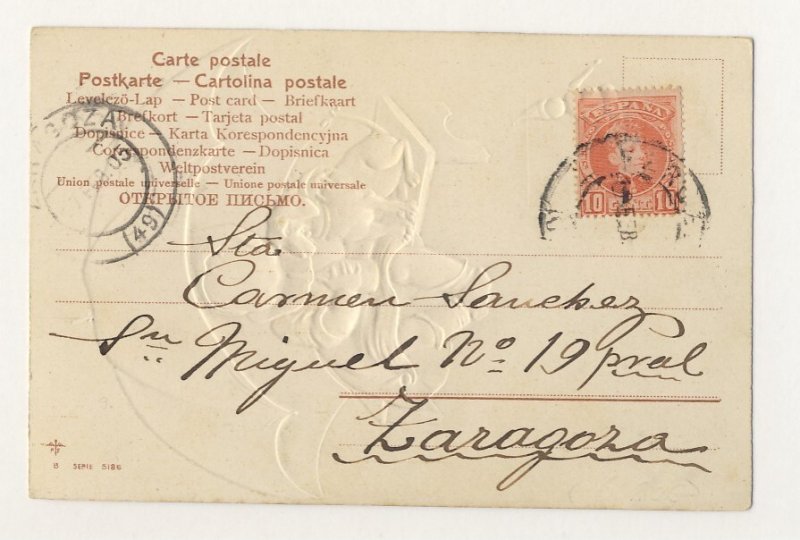 Carte postale
Postkarte — Cartolina postale
Levelező-Lap — Post card — Briefkaart
Brefkort — Tarjeta postal
Dopisnice — Karta Korespondencyjna
Correspondenzkarte — Dopisnica
Weltpostverein
Union postale universelle — Unione postale universale
ОТКРЫТОЕ ПИСЬМО.
ZARAGOZA
05
(49)
ESPAÑA
10 CENT. 10
Sta
Carmen Sanchez
Sn Miguel Nº 19 pral
Zaragoza
B SERIE 5186